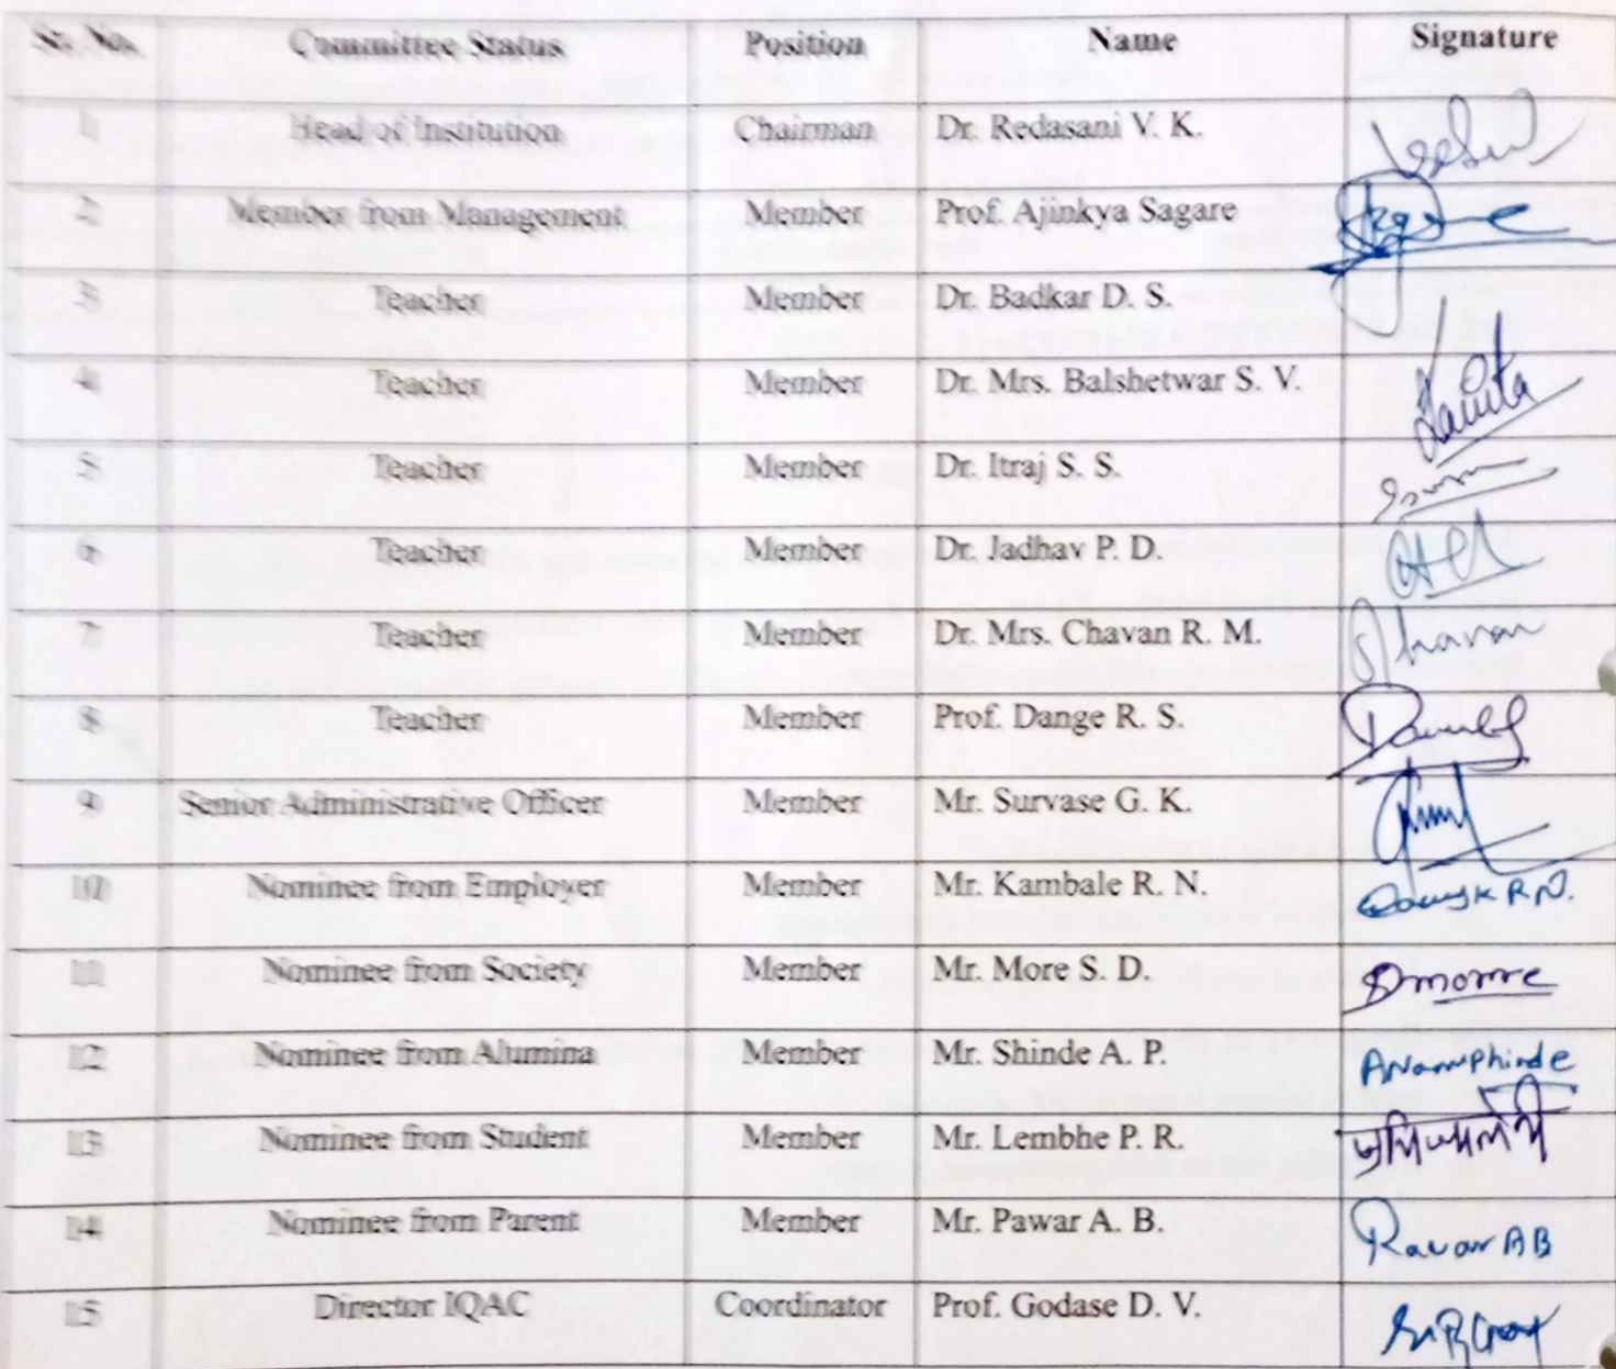 Sr. No. Committee Status Position Name Signature
1 Head of Institution Chairman Dr. Redasani V. K.
2 Member from Management Member Prof. Ajinkya Sagare
3 Teacher Member Dr. Badkar D. S.
4 Teacher Member Dr. Mrs. Balshetwar S. V.
5 Teacher Member Dr. Itraj S. S.
6 Teacher Member Dr. Jadhav P. D.
7 Teacher Member Dr. Mrs. Chavan R. M.
8 Teacher Member Prof. Dange R. S.
9 Senior Administrative Officer Member Mr. Survase G. K.
10 Nominee from Employer Member Mr. Kambale R. N. R.N.
11 Nominee from Society Member Mr. More S. D.
12 Nominee from Alumina Member Mr. Shinde A. P.
13 Nominee from Student Member Mr. Lembhe P. R.
14 Nominee from Parent Member Mr. Pawar A. B. Pawar AB
15 Director IQAC Coordinator Prof. Godase D. V.